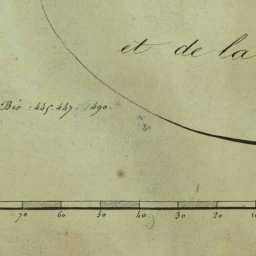 et de la
Bro. 445. 447. 490.
70 60 50 40 30 20 10